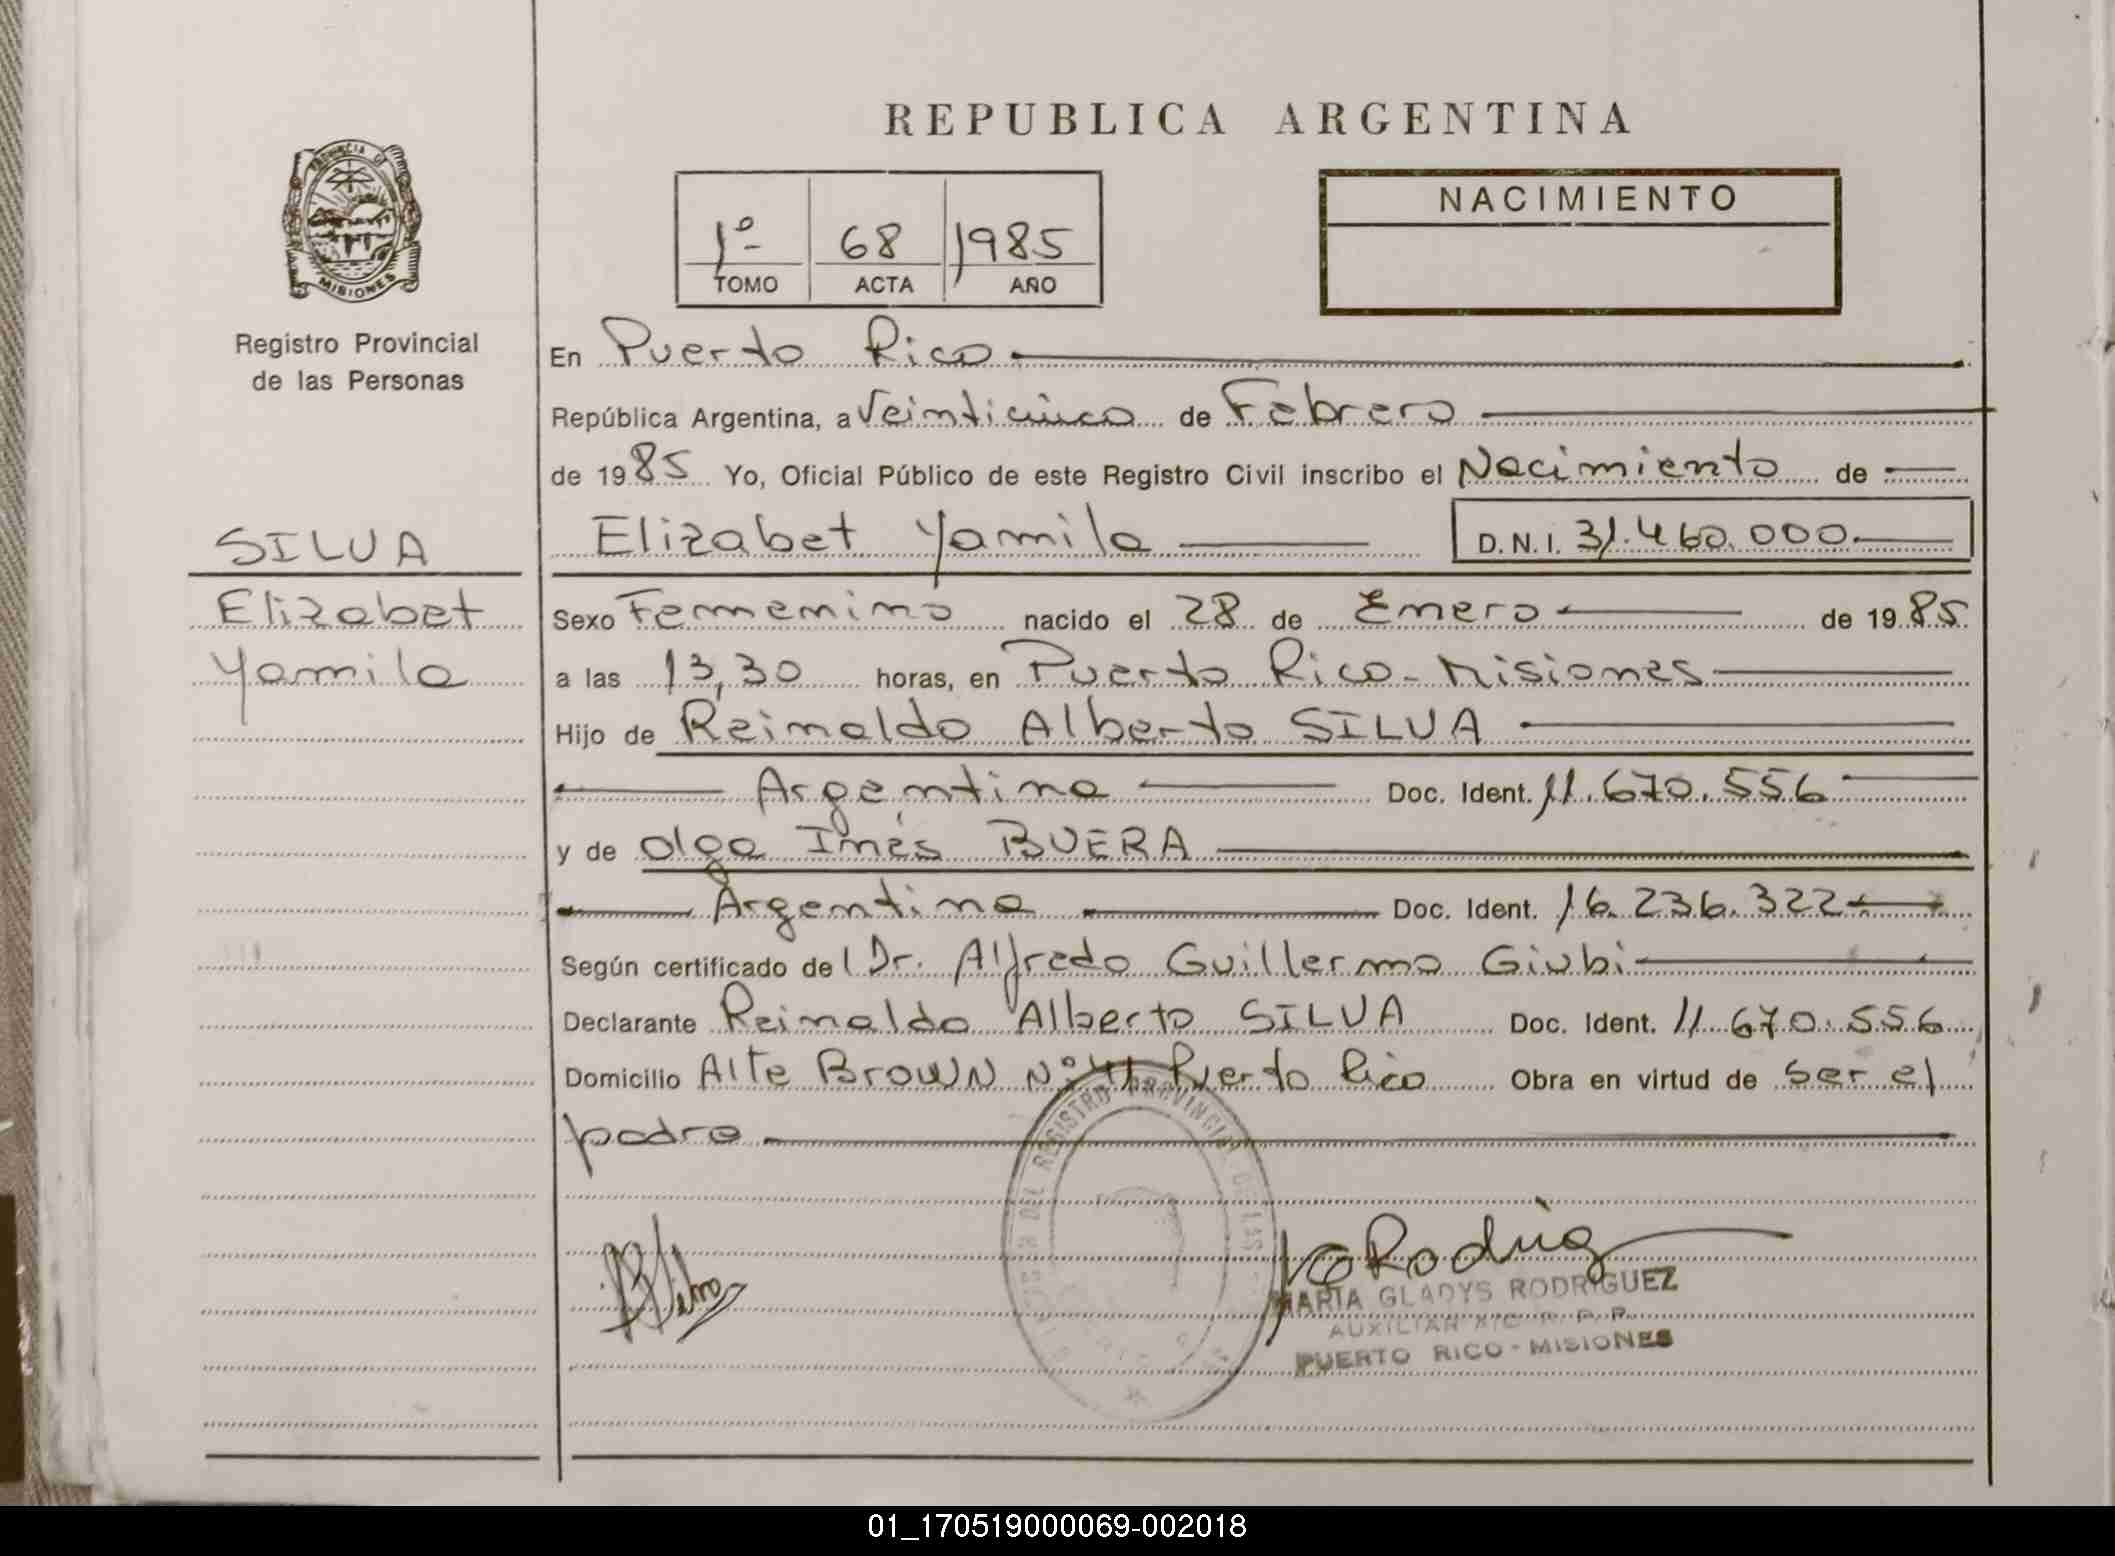 REPUBLICA ARGENTINA
PROVINCIA DE
MISIONES
Registro Provincial
de las Personas
1º TOMO 68 ACTA 1985 AÑO
NACIMIENTO
En Puerto Rico
República Argentina, a Veinticinco de Febrero
de 1985 Yo, Oficial Público de este Registro Civil inscribo el Nacimiento de
Elizabet Yamila D.N.I. 31.460.000
SILVA
Elizabet
Yamila
Sexo Femenino nacido el 28 de Enero de 1985
a las 13,30 horas, en Puerto Rico - Misiones
Hijo de Reinaldo Alberto SILVA
Argentina Doc. Ident. 11.670.556
y de Olga Inés BUERA
Argentina Doc. Ident. 16.236.322
Según certificado del Dr. Alfredo Guillermo Giubi
Declarante Reinaldo Alberto SILVA Doc. Ident. 11.670.556
Domicilio Alte Brown Nº 41 Puerto Rico Obra en virtud de ser el
padre
DEL REGISTRO PROVINCIAL DE LAS
MARIA GLADYS RODRIGUEZ
AUXILIAR A/C R. P. P.
PUERTO RICO - MISIONES
01_170519000069-002018